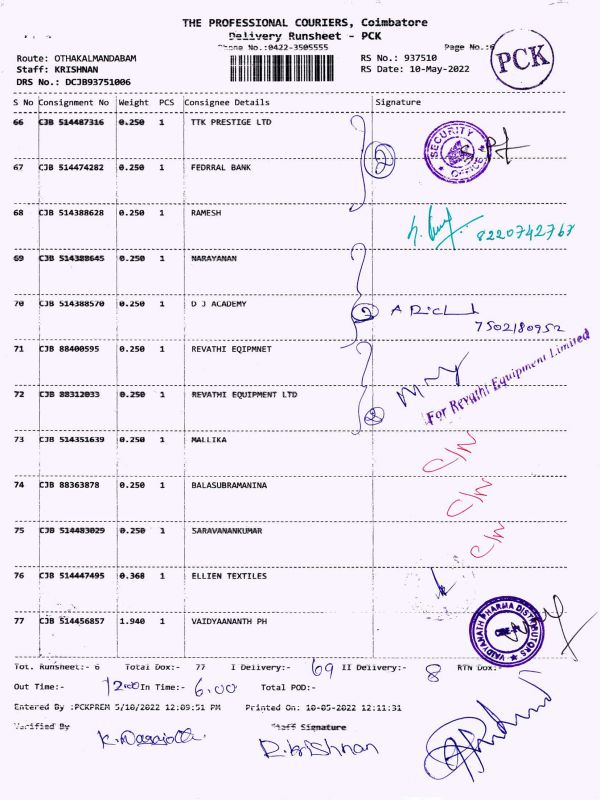 THE PROFESSIONAL COURIERS, Coimbatore
Delivery Runsheet - PCK
Phone No.:0422-3505555
Page No.:6
PCK
Route: OTHAKALMANDABAM
RS No.: 937510
Staff: KRISHNAN
RS Date: 10-May-2022
DRS No.: DCJB93751006
S No Consignment No Weight PCS Consignee Details Signature
66 CJB 514487316 0.250 1 TTK PRESTIGE LTD
SECURITY OFFICE
2
67 CJB 514474282 0.250 1 FEDRRAL BANK
68 CJB 514388628 0.250 1 RAMESH
8220742767
69 CJB 514388645 0.250 1 NARAYANAN
70 CJB 514388570 0.250 1 D J ACADEMY
2
7502180952
71 CJB 88400595 0.250 1 REVATHI EQIPMNET
For Revathi Equipment Limited
72 CJB 88312033 0.250 1 REVATHI EQUIPMENT LTD
2
73 CJB 514351639 0.250 1 MALLIKA
C/N
74 CJB 88363878 0.250 1 BALASUBRAMANINA
C/N
75 CJB 514483029 0.250 1 SARAVANANKUMAR
C/N
76 CJB 514447495 0.368 1 ELLIEN TEXTILES
77 CJB 514456857 1.940 1 VAIDYAANANTH PH
VAIDYANATH PHARMA DISTRIBUTORS
Tot. Runsheet:- 6 Total Dox:- 77 I Delivery:- 69 II Delivery:- 8 RTN Dox:-
Out Time:- 12.00 In Time:- 6.00 Total POD:-
Entered By :PCKPREM 5/10/2022 12:09:51 PM Printed On: 10-05-2022 12:11:31
Varified By
Staff Signature
R.kriShnan